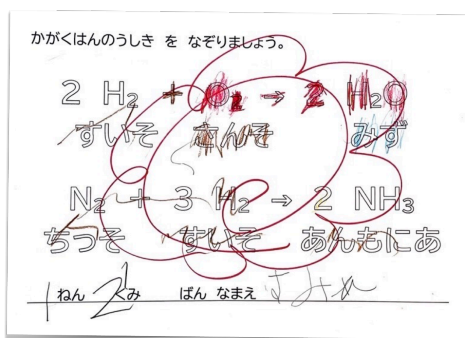 かがくはんのうしき を なぞりましょう。
2 H₂ + O₂ → 2 H₂O
すいそ さんそ みず
N₂ + 3 H₂ → 2 NH₃
ちっそ すいそ あんもにあ
1 ねん 2 くみ ばん なまえ